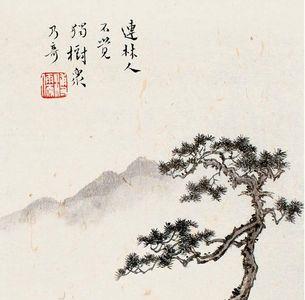 連林人
不覺
獨樹衆
乃奇